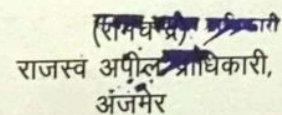 (रामचन्द्र)
राजस्व अपील प्राधिकारी,
अजमेर